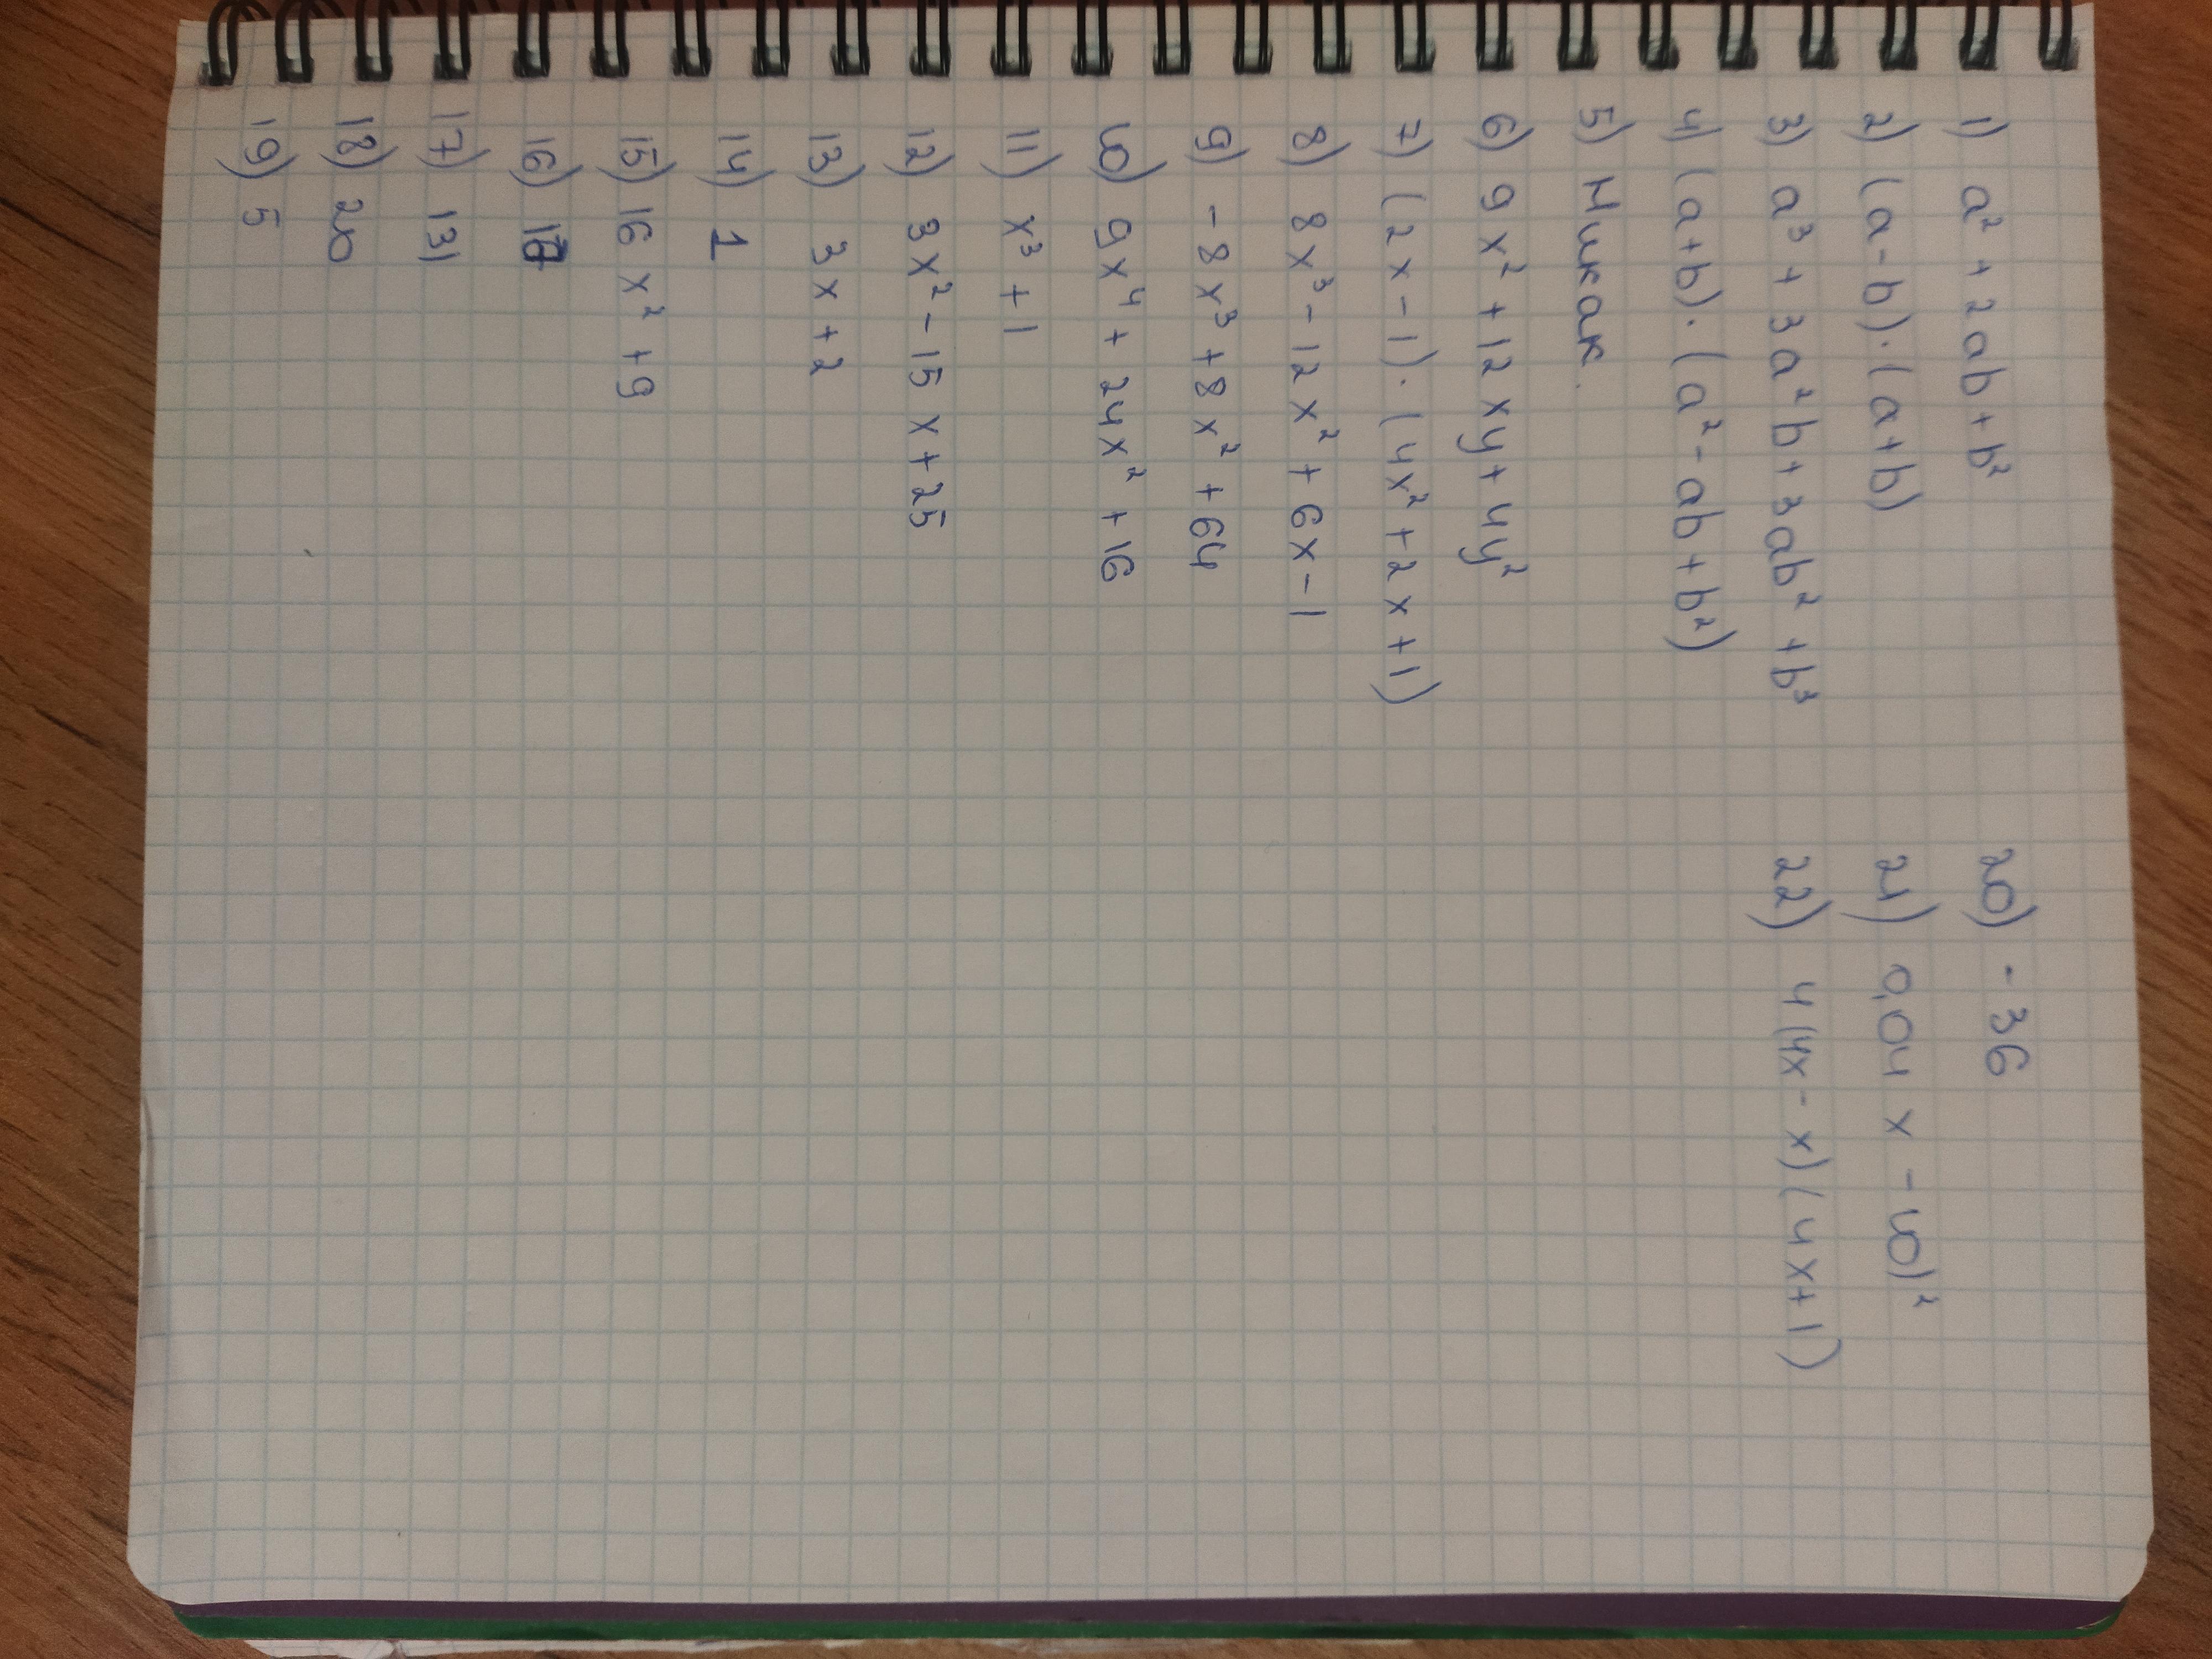 1) a² + 2ab + b²
2) (a - b) · (a + b)
3) a³ + 3a²b + 3ab² + b³
4) (a + b) · (a² - ab + b²)
5) Никак.
6) 9x² + 12xy + 4y²
7) (2x - 1) · (4x² + 2x + 1)
8) 8x³ - 12x² + 6x - 1
9) - 8x³ + 8x² + 64
10) 9x⁴ + 24x² + 16
11) x³ + 1
12) 3x² - 15x + 25
13) 3x + 2
14) 1
15) 16x² + 9
16)
17) 131
18) 20
19) 5
20) - 36
21) 0,04x - 10)²
22) 4(4x - x)(4x + 1)